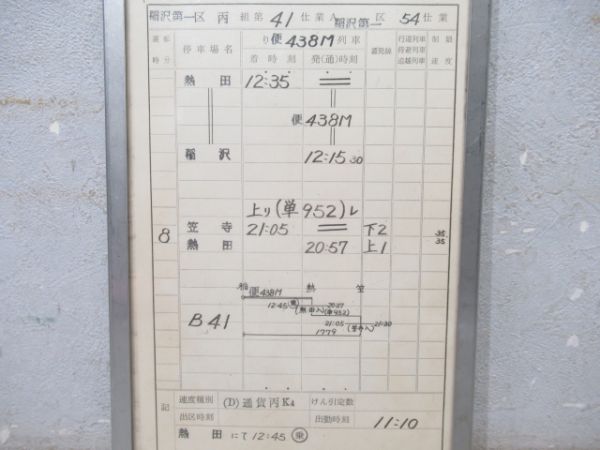 稲沢第一区 丙 組第 41 仕業 A 稲沢第一 区 54 仕業
運転時分 停車場名 り 便438M 列車 着時刻 発(通)時刻 着発線 行違列車 待避列車 追越列車 制限速度
熱田 12:35 ==
便438M
稲沢 12:15 30
上り(単952)レ
8 笠寺 21:05 == 下2 35
熱田 20:57 上1 35
稲 熱 笠
便438M
12:45(乗) 20:57
(熱田入) (単952)
B 41 21:05 21:30
1779
記 速度種別 (D)通貨丙K4 けん引定数
出区時刻 出勤時刻 11:10
熱田 にて 12:45 (乗)